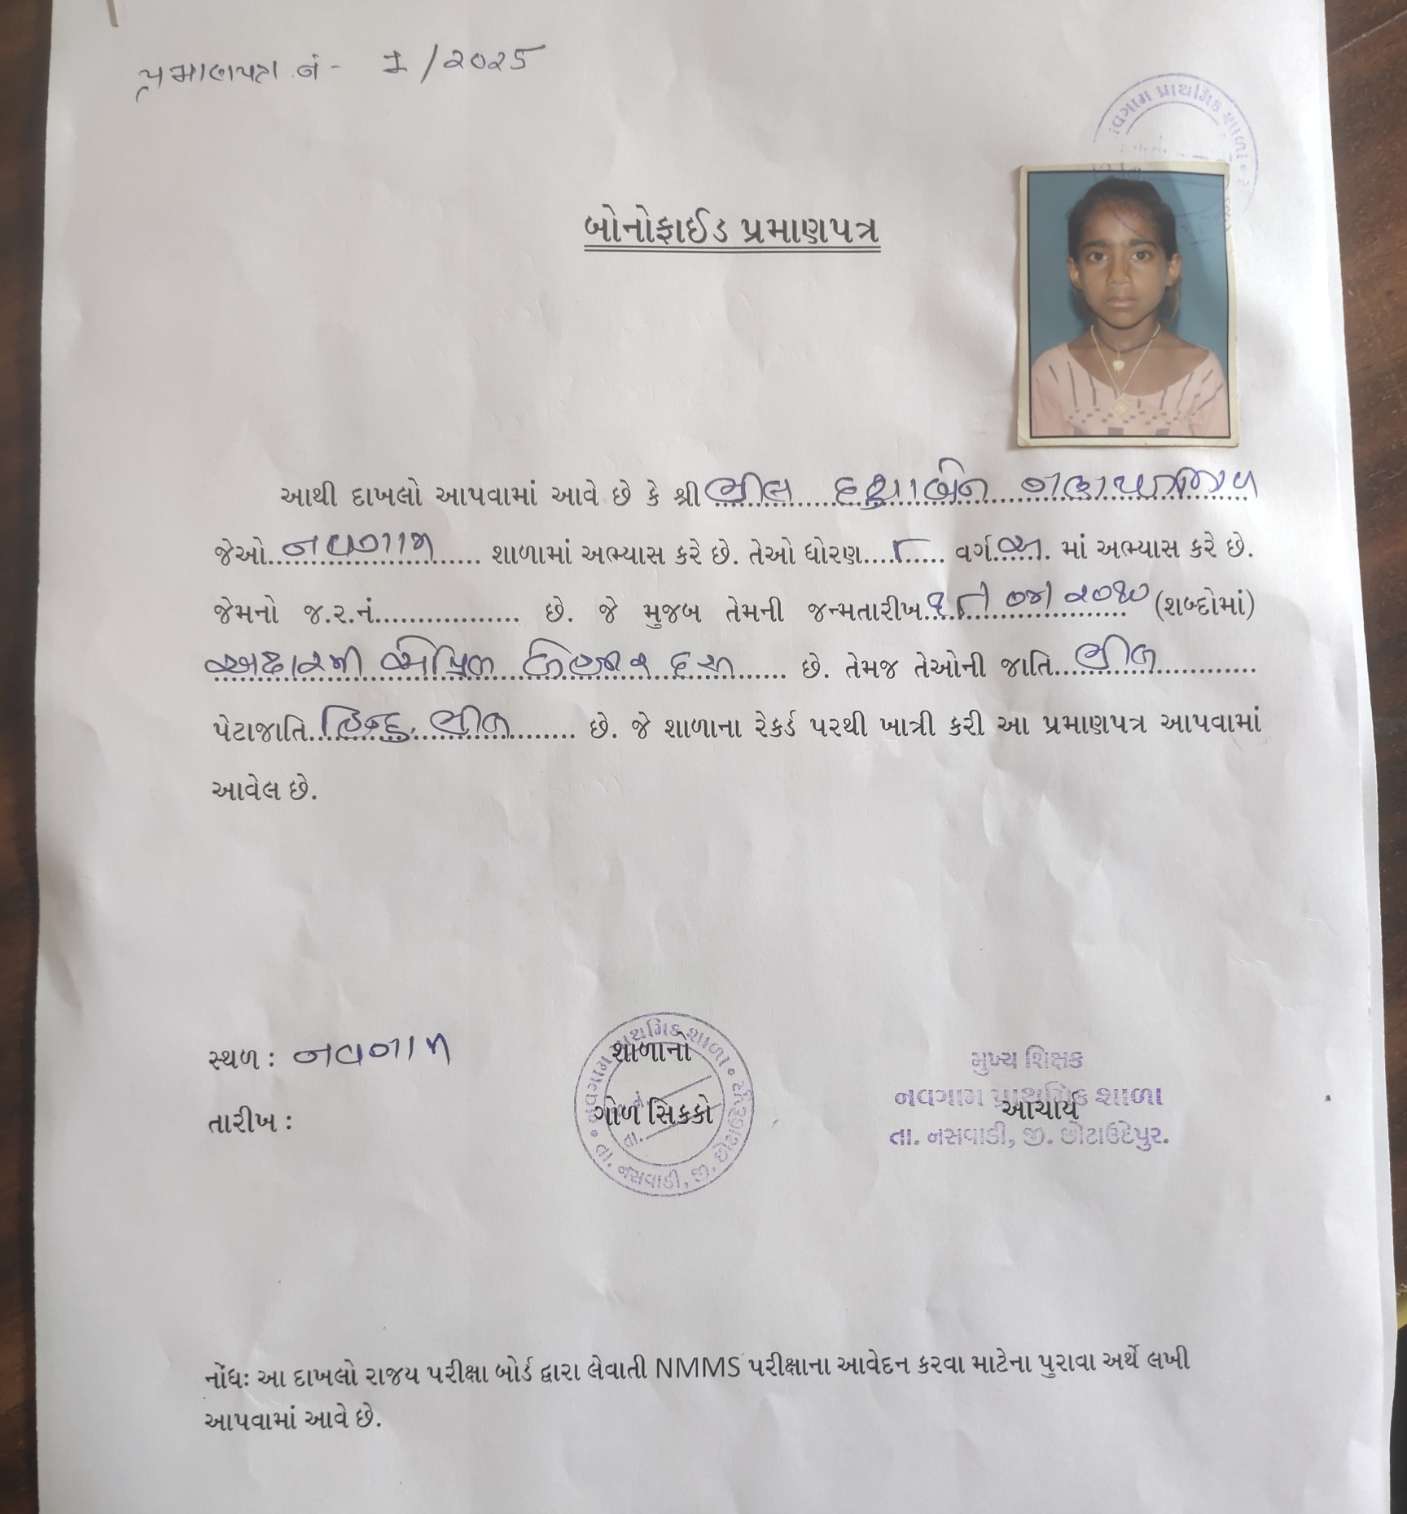 પ્રમાણપત્ર નં - 1/૨૦૨૫
નવગામ પ્રાથમિક શાળા
બોનોફાઈડ પ્રમાણપત્ર
આથી દાખલો આપવામાં આવે છે કે શ્રી ભીલ દક્ષાબેન
જેઓ નવગામ શાળામાં અભ્યાસ કરે છે. તેઓ ધોરણ ૮ વર્ગ અ માં અભ્યાસ કરે છે.
જેમનો જ.ર.નં................. છે. જે મુજબ તેમની જન્મતારીખ ૧૮/૦૪/૨૦૧૦ (શબ્દોમાં)
અઢારમી એપ્રિલ બે હજાર દસ છે. તેમજ તેઓની જાતિ ભીલ
પેટાજાતિ હિન્દુ ભીલ છે. જે શાળાના રેકર્ડ પરથી ખાત્રી કરી આ પ્રમાણપત્ર આપવામાં
આવેલ છે.
સ્થળ : નવગામ
તારીખ :
શાળાનો
ગોળ સિક્કો
નવગામ પ્રાથમિક શાળા
તા. નસવાડી, જી. છોટાઉદેપુર
મુખ્ય શિક્ષક
નવગામ પ્રાથમિક શાળા
આચાર્ય
તા. નસવાડી, જી. છોટાઉદેપુર.
નોંધઃ આ દાખલો રાજય પરીક્ષા બોર્ડ દ્વારા લેવાતી NMMS પરીક્ષાના આવેદન કરવા માટેના પુરાવા અર્થે લખી
આપવામાં આવે છે.